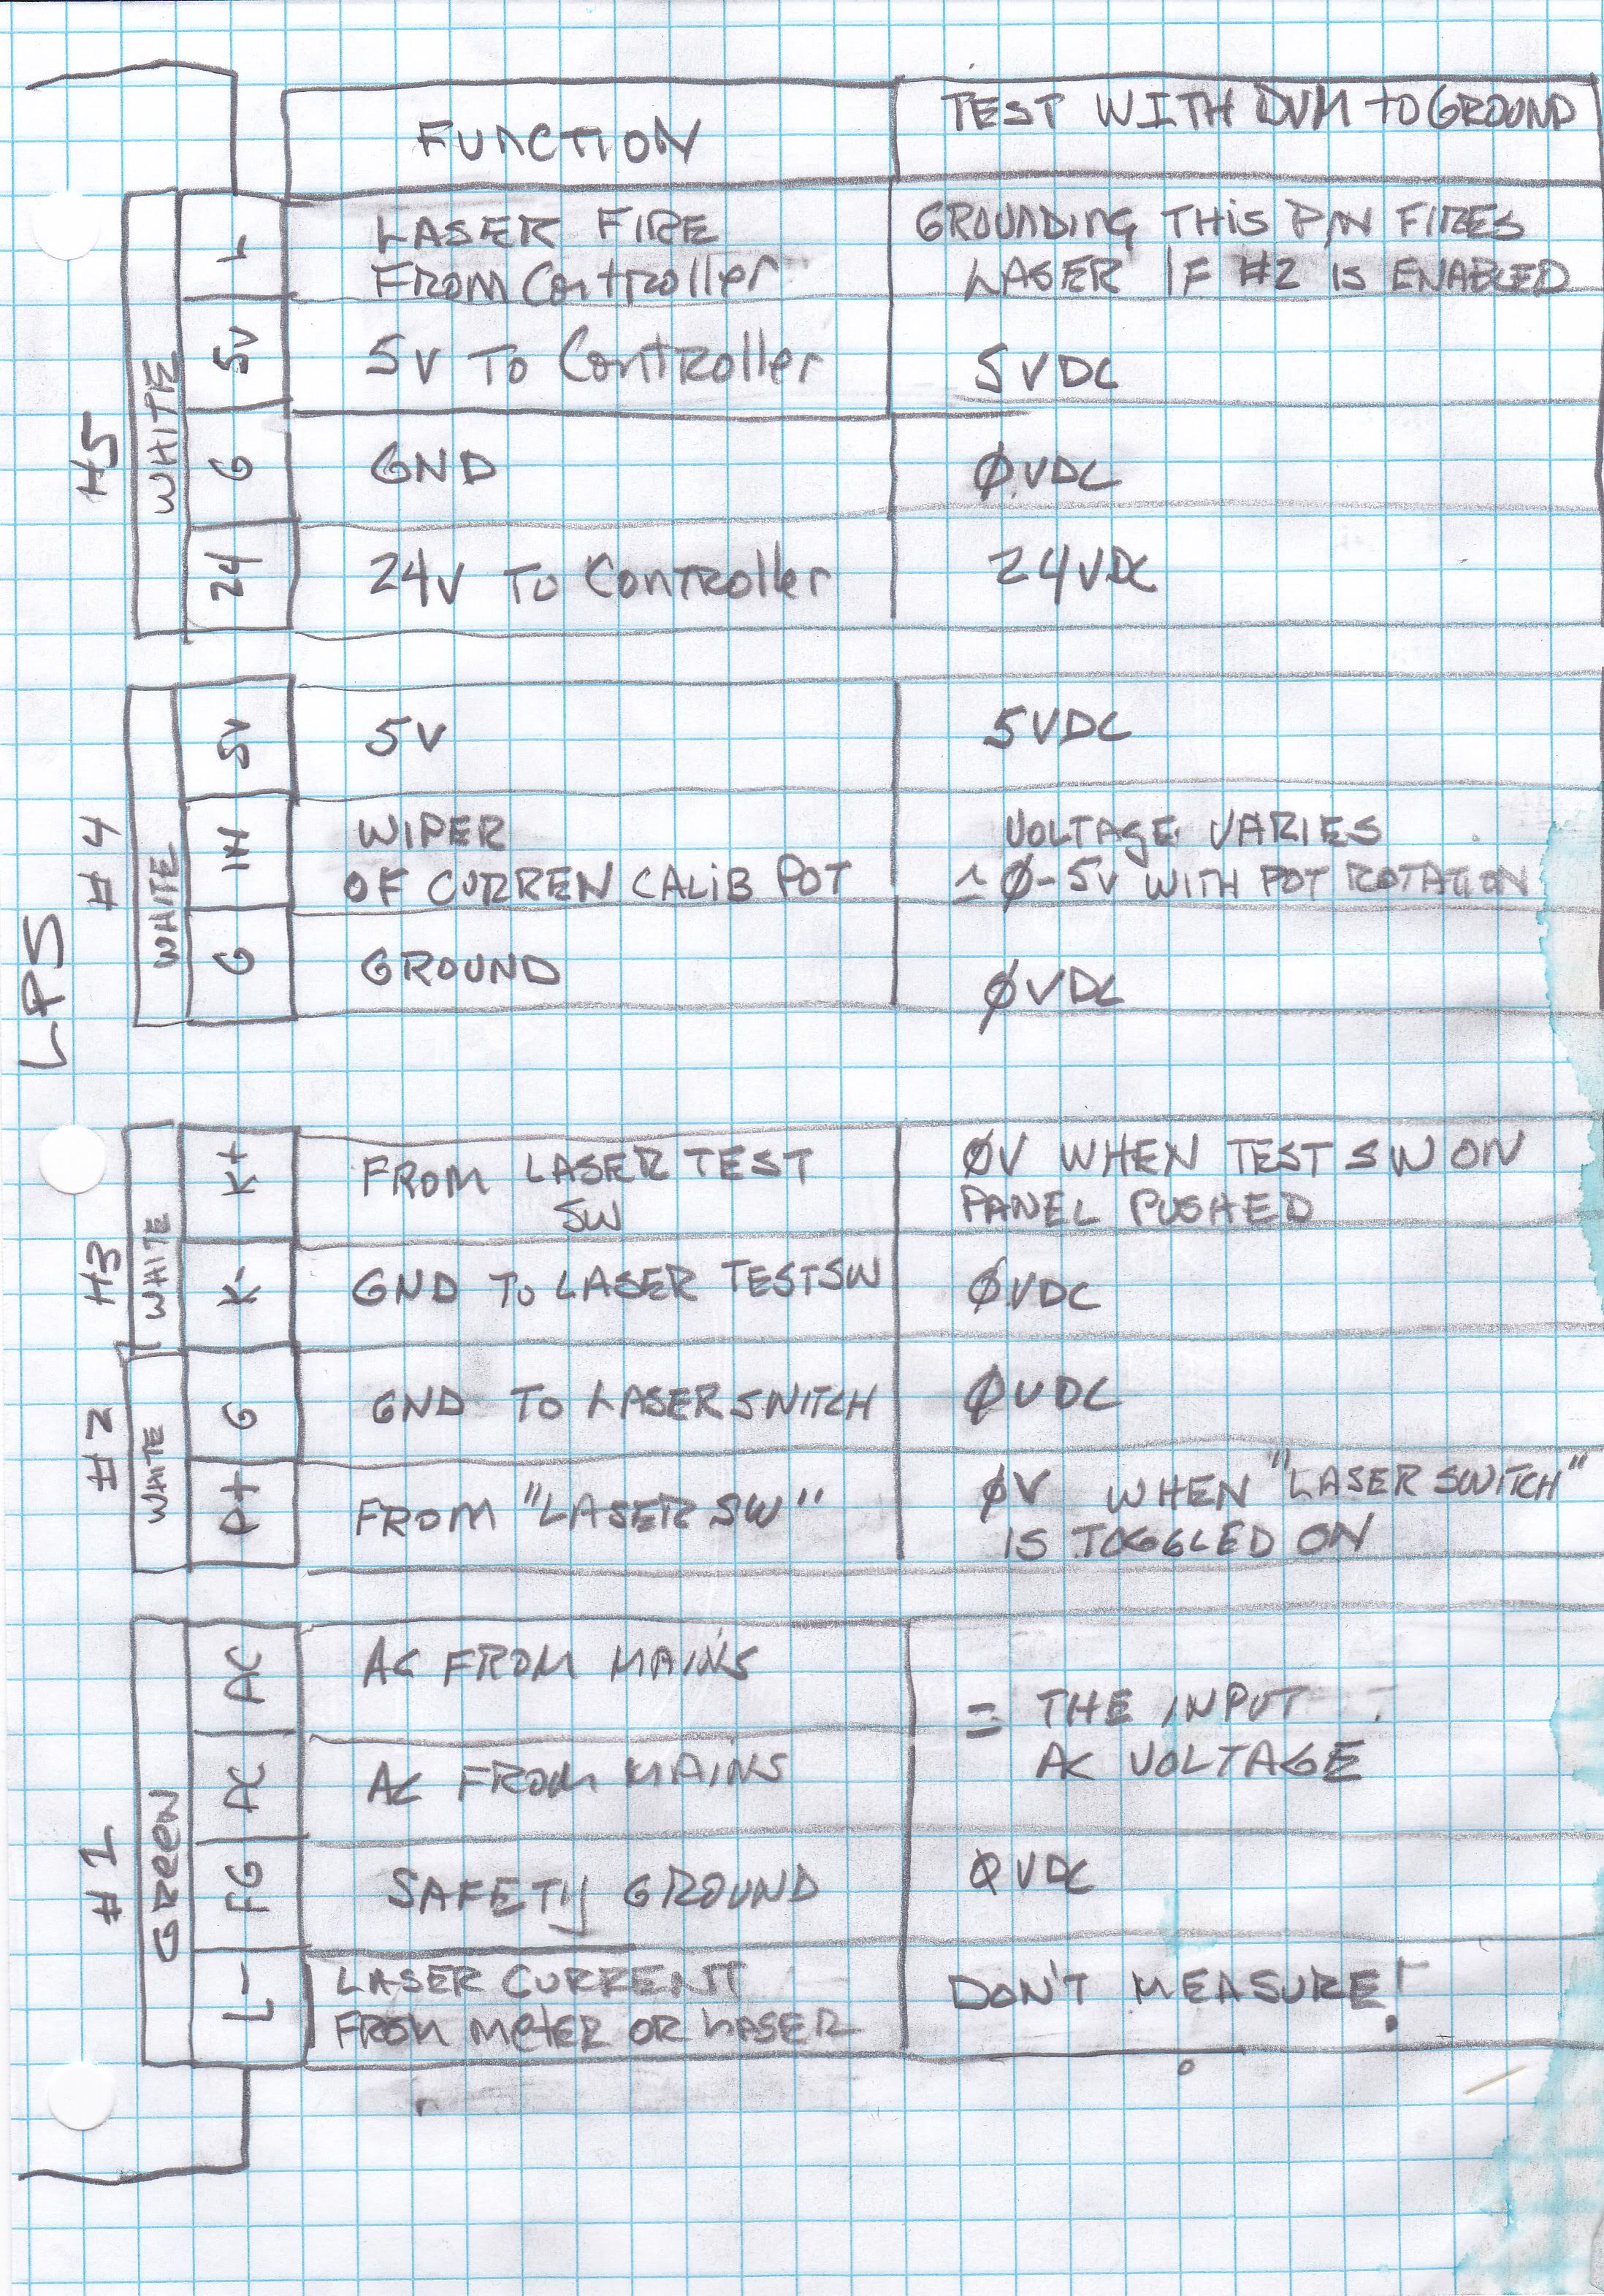 FUNCTION
TEST WITH DVM TO GROUND
LPS
#5
WHITE
L
LASER FIRE
FROM Controller
GROUNDING THIS PIN FIRES
LASER IF #2 IS ENABLED
5V
5V TO Controller
5VDC
G
GND
ØVDC
24
24V TO Controller
24VDC
#4
WHITE
5V
5V
5VDC
IN
WIPER
OF CURREN CALIB POT
VOLTAGE VARIES
≃ Ø-5V WITH POT ROTATION
G
GROUND
ØVDC
#3
WHITE
K+
FROM LASER TEST
SW
ØV WHEN TEST SW ON
PANEL PUSHED
K-
GND TO LASER TEST SW
ØVDC
#2
WHITE
G
GND TO LASER SWITCH
ØVDC
P+
FROM "LASER SW"
ØV WHEN "LASER SWITCH"
IS TOGGLED ON
#1
GREEN
AC
AC FROM MAINS
AC
AC FROM MAINS
= THE INPUT
AC VOLTAGE
FG
SAFETY GROUND
ØVDC
L-
LASER CURRENT
FROM METER OR LASER
DON'T MEASURE!